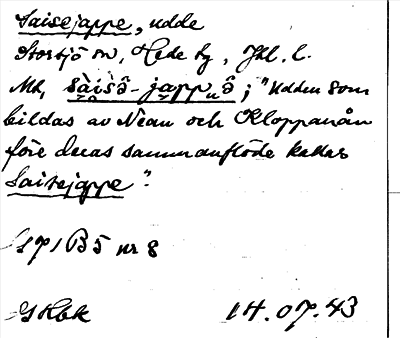 Saisejappe, udde
Storsjö sn, Hede tg, Jtl. l.
Mh, sàisə̂-jappₙə̂; "Udden som
bildas av Nean och Kloppanån
före deras sammanflöde kallas
Saisejappe".
B5 nr 8
14.07.43